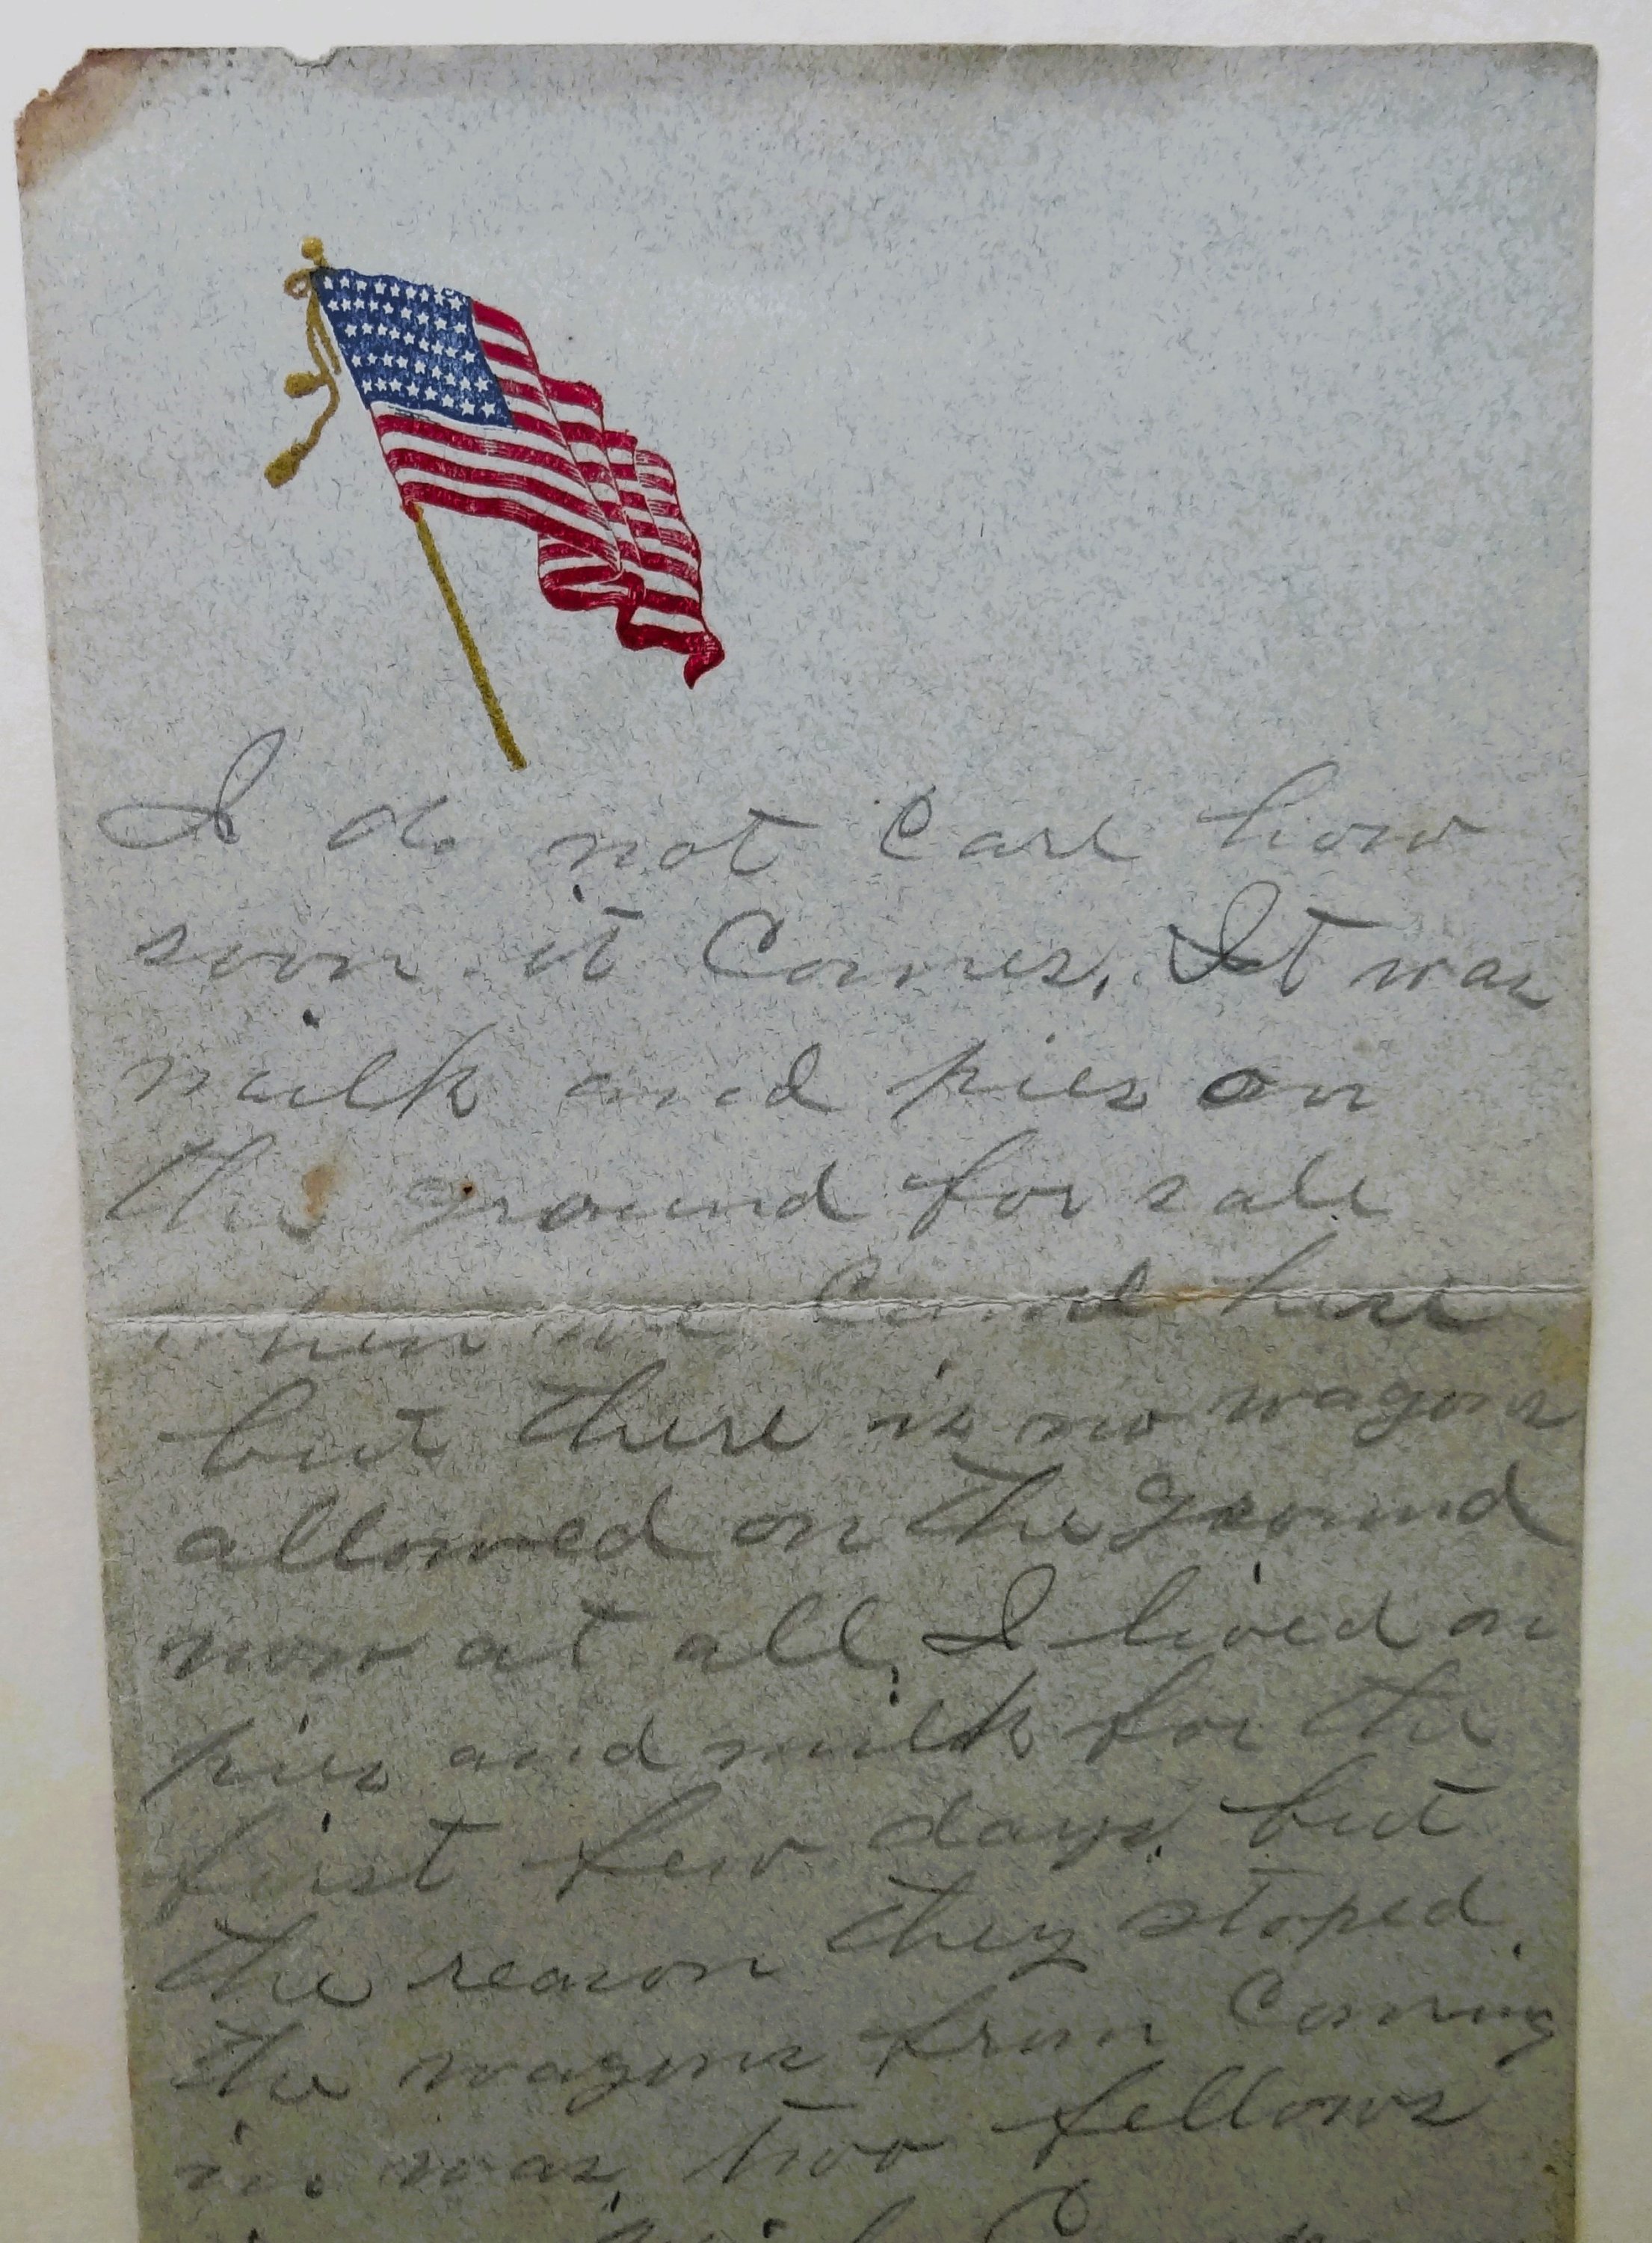 I do not Care how
soon it Comes, It was
milk and pies on
the ground for sale
when we Camd here
but there is no wagons
allowed on the ground
now at all, I lived on
pies and milk for the
first few days, but
the reason they stoped
the wagons from Coming
in was two fellows